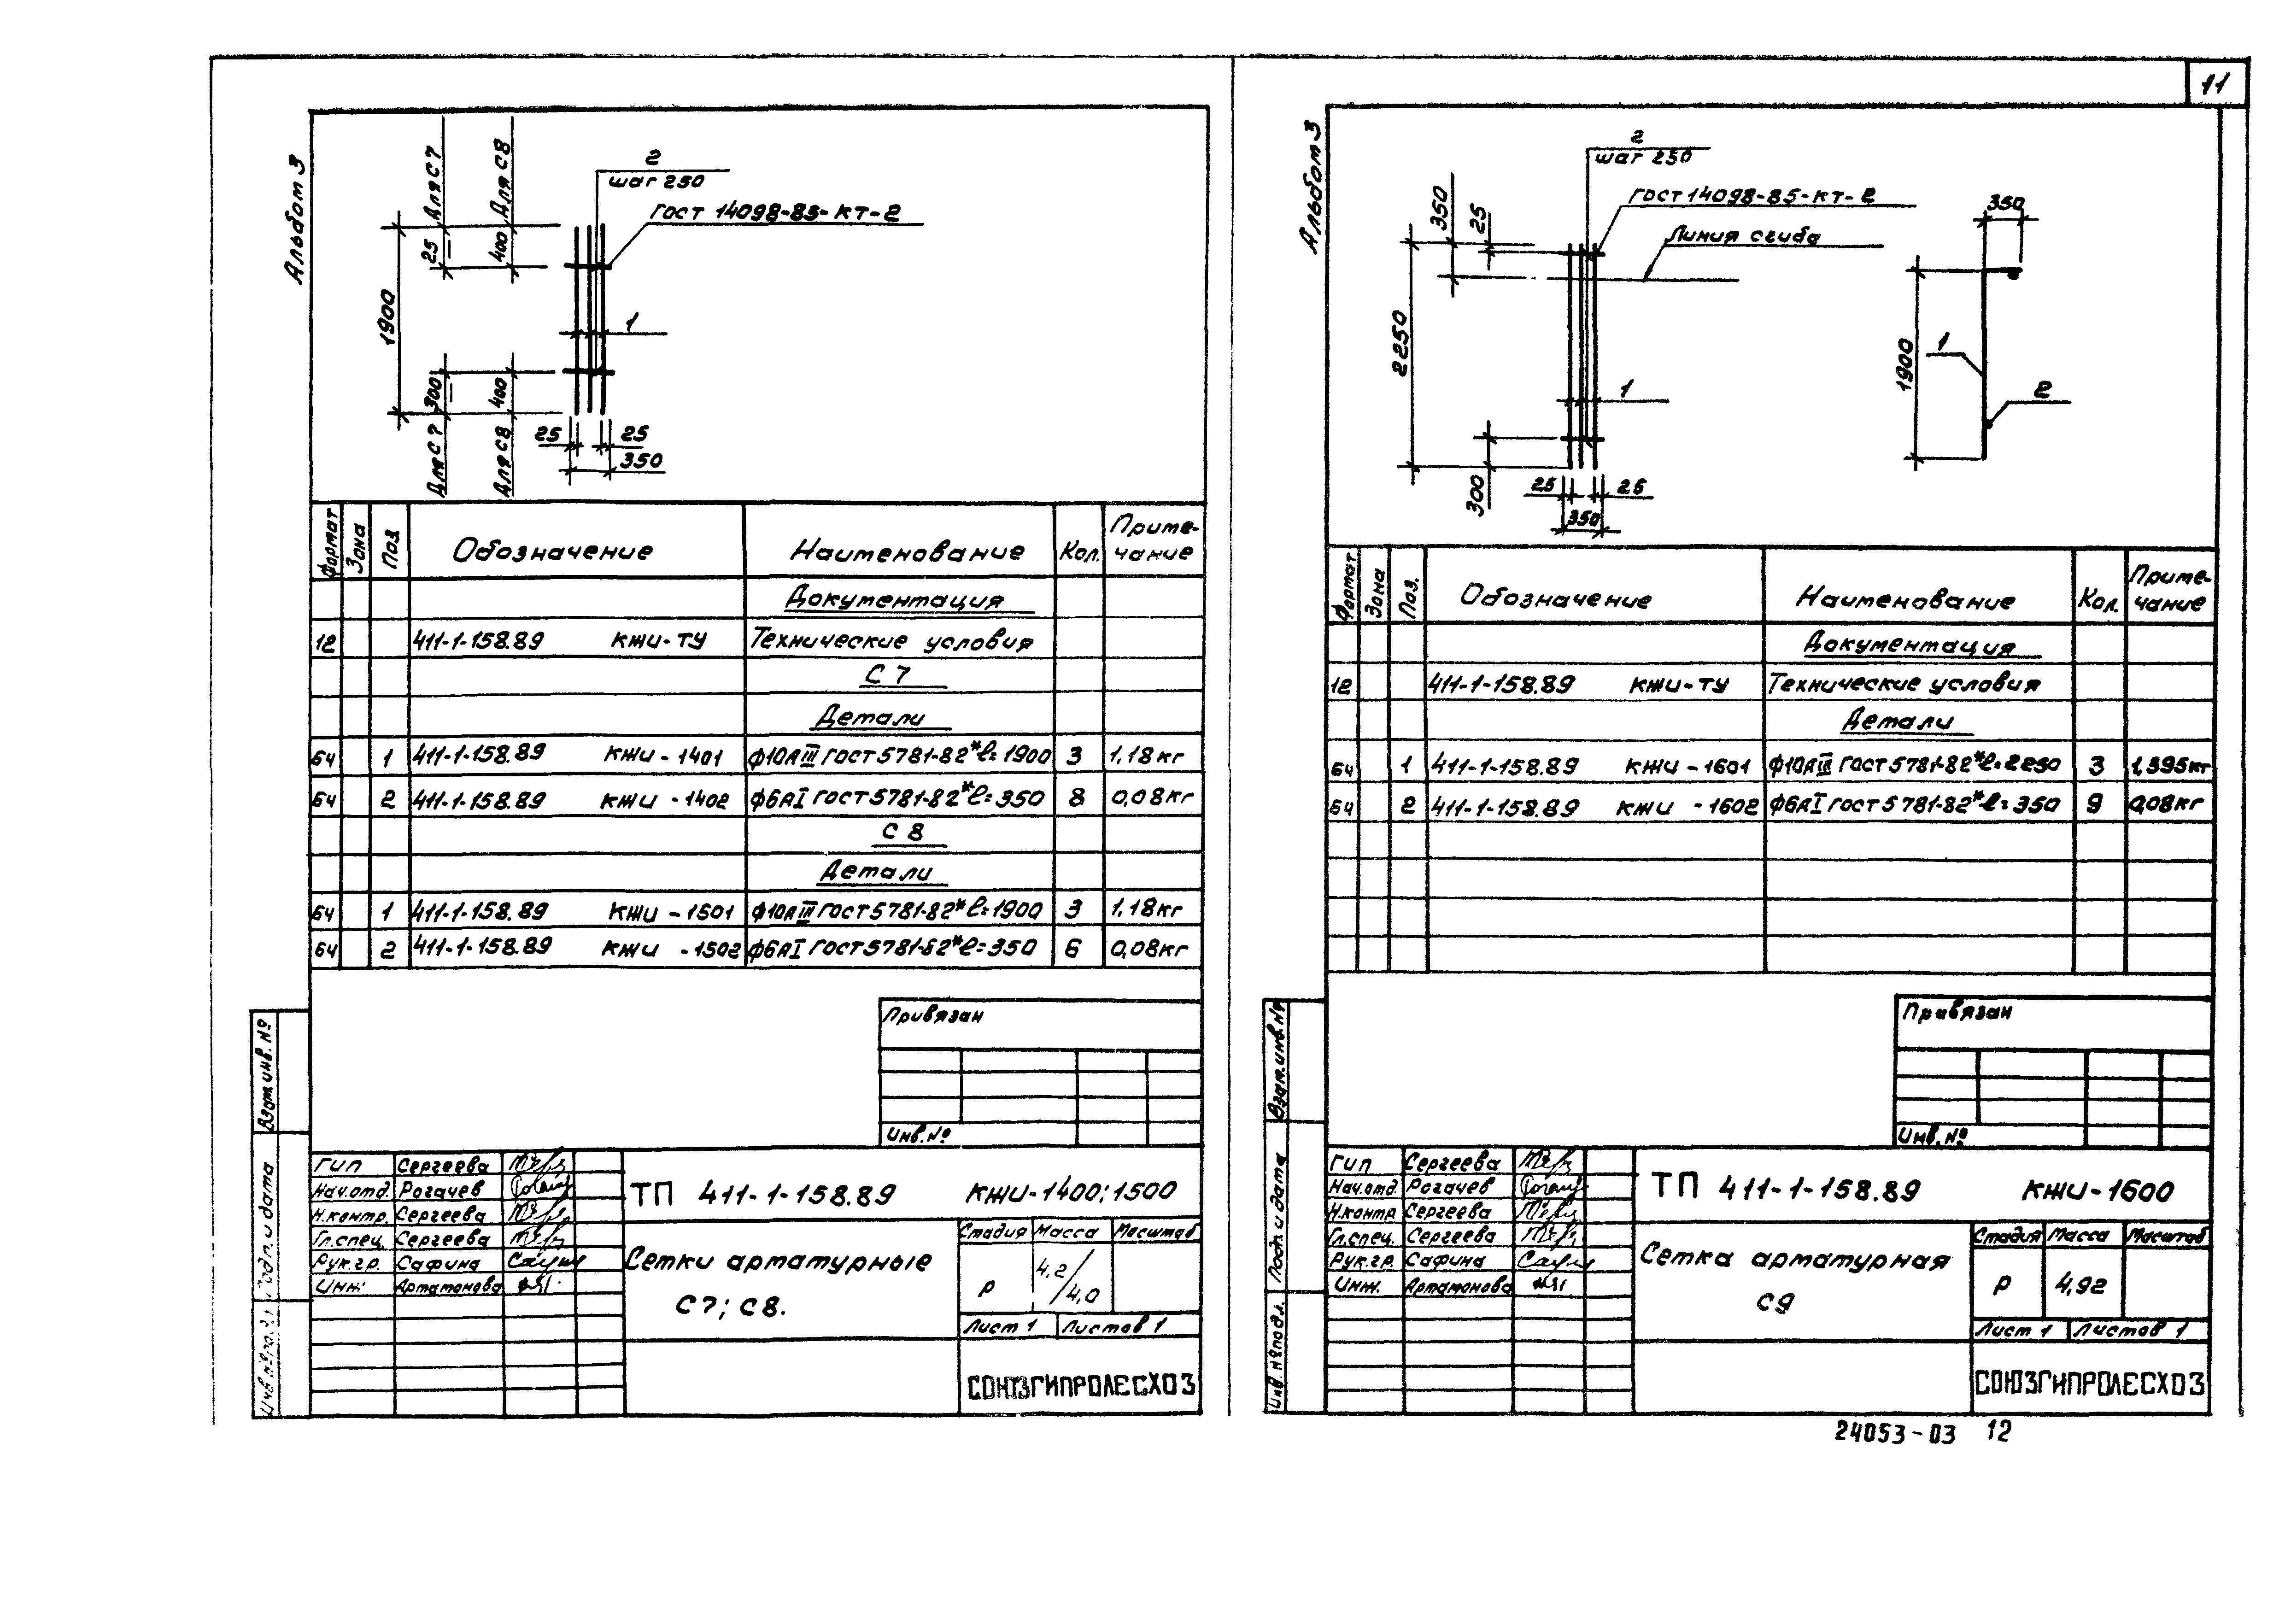 11
Альбом 3
Для С7
Для С8
2
шаг 250
ГОСТ 14098-85-КТ-2
25
400
1900
1
300
400
Для С7
Для С8
25
25
350
Формат Зона Поз. Обозначение Наименование Кол. Приме-
чание
Документация
12 411-1-158.89 КЖИ-ТУ Технические условия
С 7
Детали
БЧ 1 411-1-158.89 КЖИ-1401 ф10АIII ГОСТ 5781-82* ℓ=1900 3 1,18кг
БЧ 2 411-1-158.89 КЖИ-1402 ф6АI ГОСТ 5781-82* ℓ=350 8 0,08кг
С 8
Детали
БЧ 1 411-1-158.89 КЖИ-1501 ф10АIII ГОСТ 5781-82* ℓ=1900 3 1,18кг
БЧ 2 411-1-158.89 КЖИ-1502 ф6АI ГОСТ 5781-82* ℓ=350 6 0,08кг
Привязан
Инв.№
Взам.инв.№
Подп. и дата
Гип Сергеева
Нач.отд. Рогачев
Н.контр. Сергеева
Гл.спец. Сергеева
Рук.гр. Сафина
Инж. Артамонова
ТП 411-1-158.89 КЖИ-1400; 1500
Сетки арматурные
С7; С8.
Стадия Масса Масштаб
Р 4,2/4,0
Лист 1 Листов 1
СОЮЗГИПРОЛЕСХОЗ
Альбом 3
2
шаг 250
ГОСТ 14098-85-КТ-2
Линия сгиба
350
25
2250
1
300
25
25
350
350
1900
1
2
Формат Зона Поз. Обозначение Наименование Кол. Приме-
чание
Документация
12 411-1-158.89 КЖИ-ТУ Технические условия
Детали
БЧ 1 411-1-158.89 КЖИ-1601 ф10АIII ГОСТ 5781-82* ℓ=2250 3 1,395кг
БЧ 2 411-1-158.89 КЖИ-1602 ф6АI ГОСТ 5781-82* ℓ=350 9 0,08кг
Привязан
Инв.№
Взам.инв.№
Подп. и дата
Инв. №подл.
Гип Сергеева
Нач.отд. Рогачев
Н.контр Сергеева
Гл.спец. Сергеева
Рук.гр. Сафина
Инж. Артамонова
ТП 411-1-158.89 КЖИ-1600
Сетка арматурная
С9
Стадия Масса Масштаб
Р 4,92
Лист 1 Листов 1
СОЮЗГИПРОЛЕСХОЗ
24053-03 12